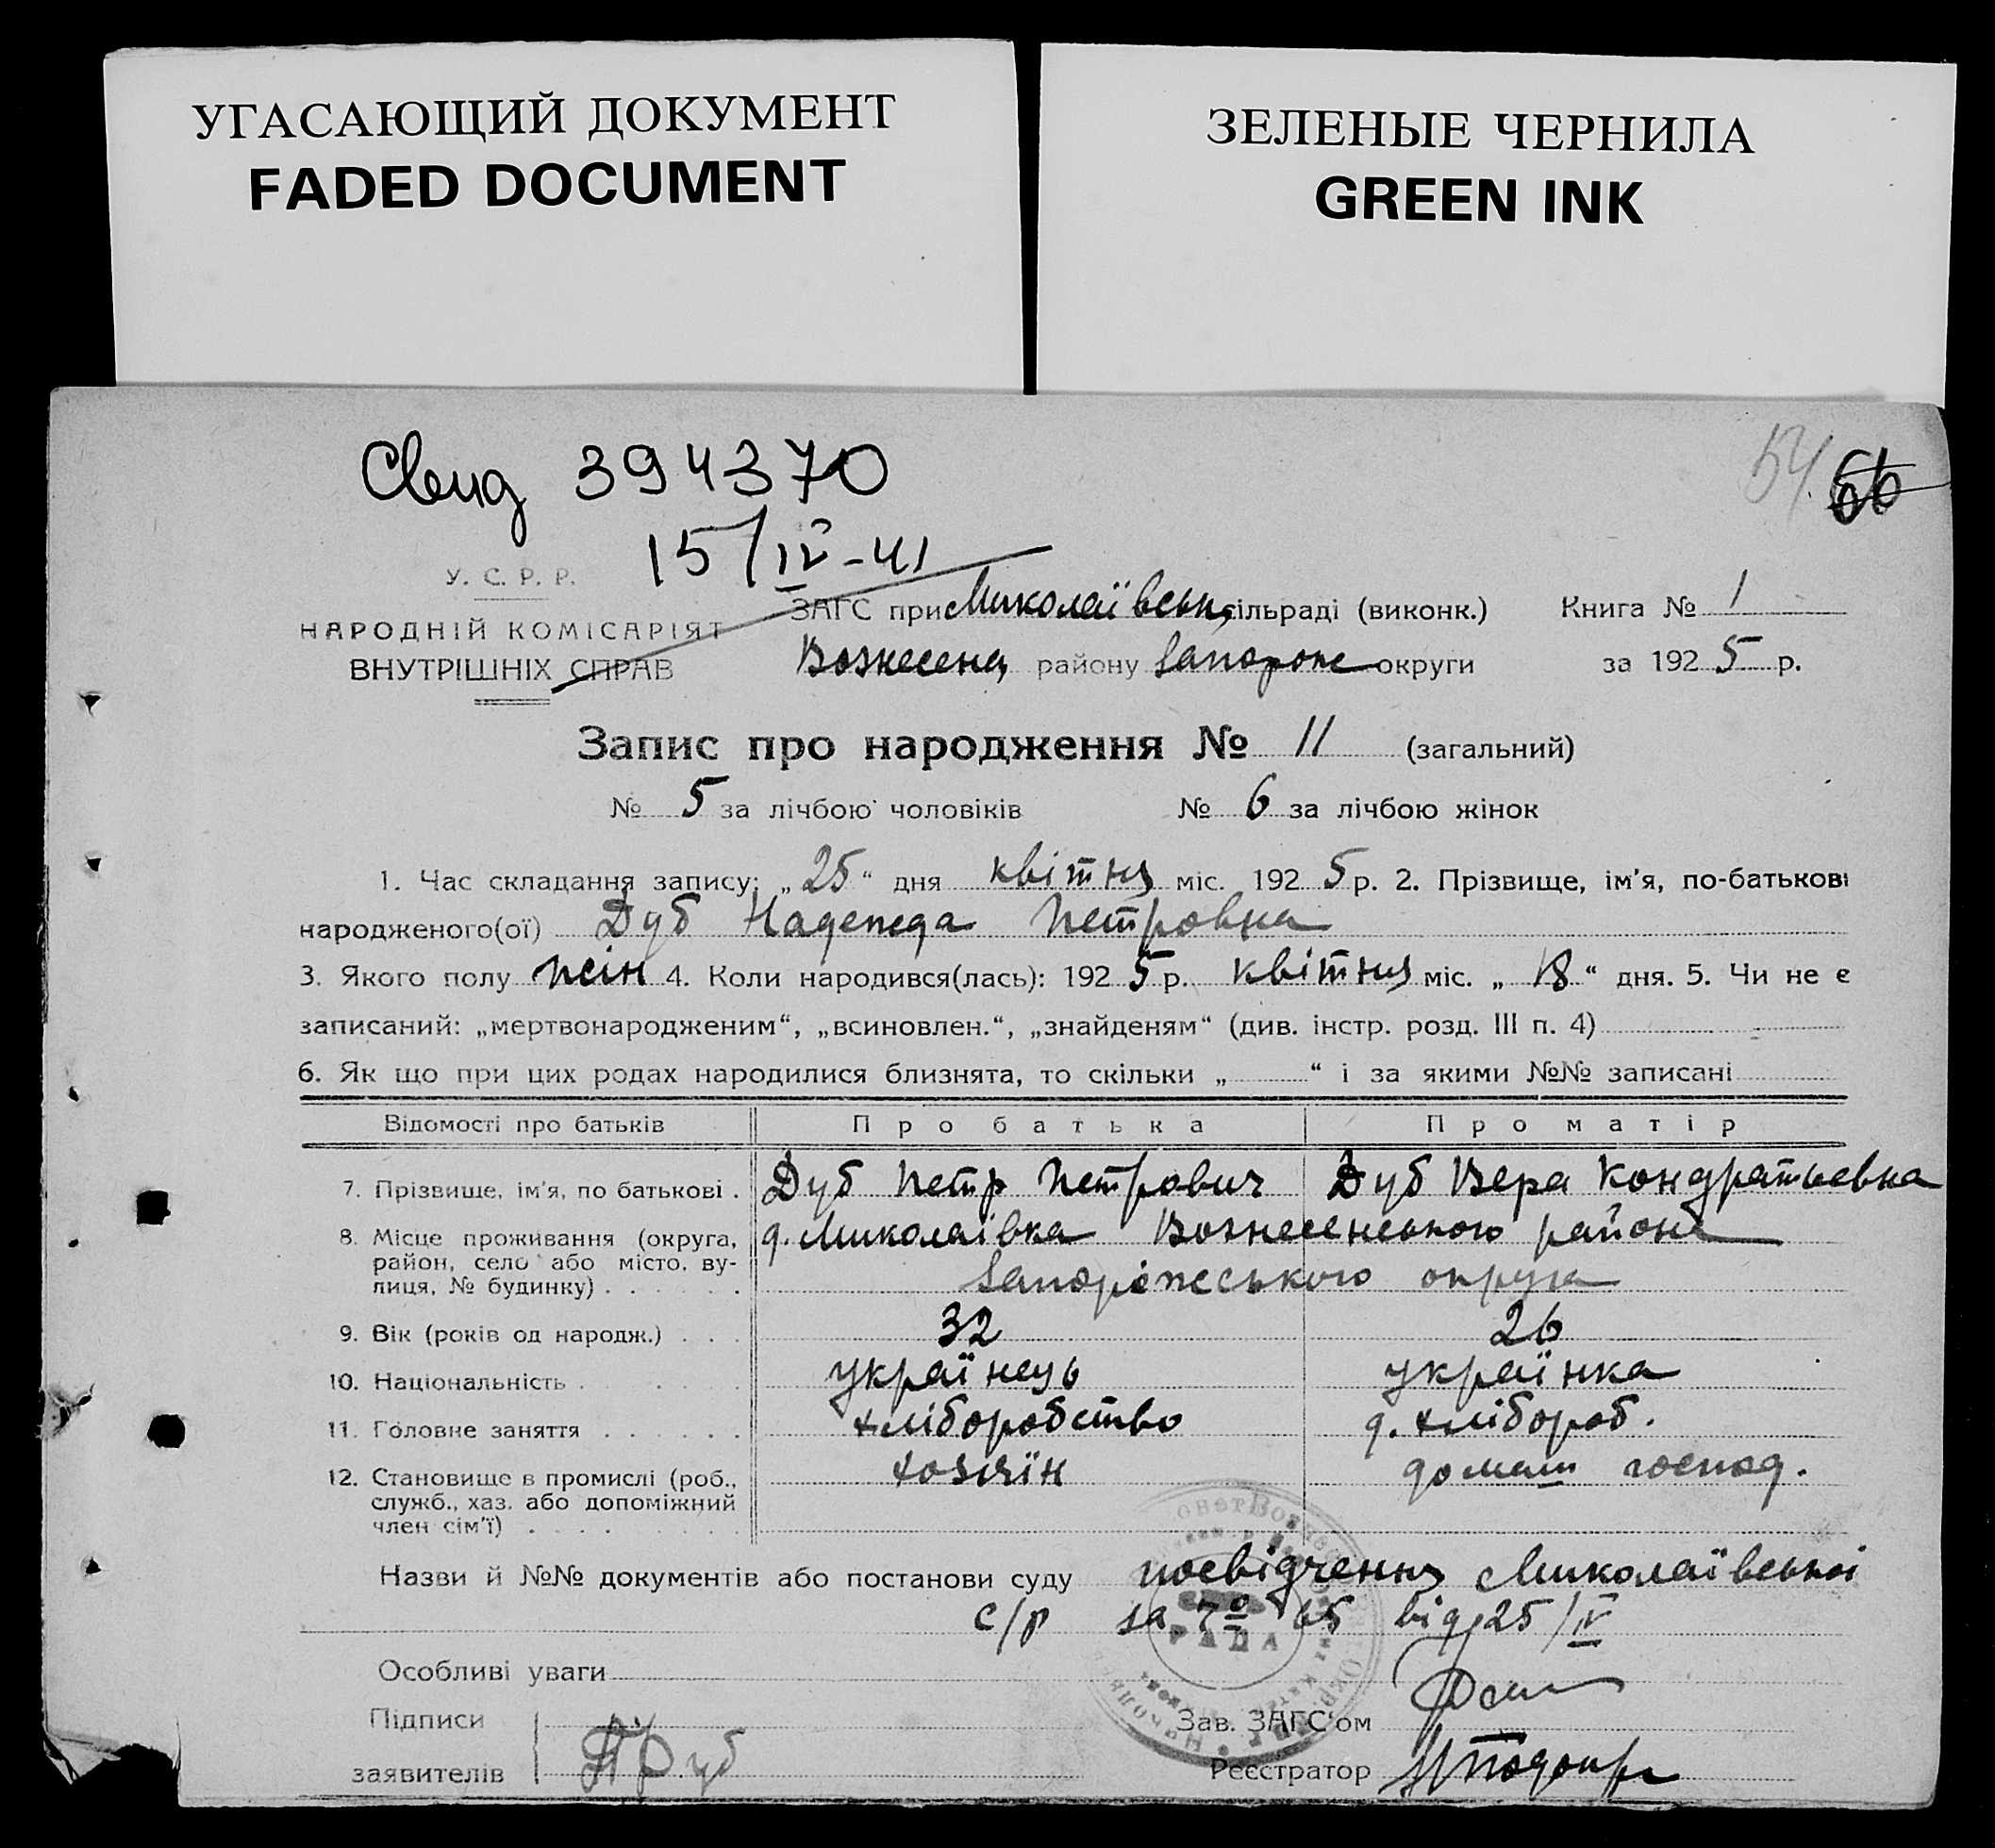 УГАСАЮЩИЙ ДОКУМЕНТ
FADED DOCUMENT
ЗЕЛЕНЫЕ ЧЕРНИЛА
GREEN INK
Свид 394370
54 66
15/IV-41
У. С. Р. Р.
НАРОДНІЙ КОМІСАРІЯТ
ВНУТРІШНІХ СПРАВ
ЗАГС при Миколаївськ сільраді (виконк.) Книга № 1
Вознесенц району Запорож округи за 1925 р.
Запис про народження № 11 (загальний)
№ 5 за лічбою чоловіків № 6 за лічбою жінок
1. Час складання запису: „25“ дня квітня міс. 1925 р. 2. Прізвище, ім’я, по-батькові
народженого(ої) Дуб Надежда Петровна
3. Якого полу жін 4. Коли народився(лась): 1925 р. квітня міс. „18“ дня. 5. Чи не є
записаний: „мертвонародженим“, „всиновлен.“, „знайденям“ (див. інстр. розд. III п. 4)
6. Як що при цих родах народилися близнята, то скільки „ “ і за якими №№ записані
Відомості про батьків Про батька Про матір
7. Прізвище, ім’я, по батькові . Дуб Петр Петрович Дуб Вера Кондратьевна
8. Місце проживання (округа, район, село або місто, вулиця, № будинку) . . . . . . д. Миколаївка Вознесенського района
Запоріжського округа
9. Вік (років од народж.) . . . 32 26
10. Національність . . . . . українець українка
11. Головне заняття . . . . . . хліборобство д. хлібороб.
12. Становище в промислі (роб., служб., хаз. або допоміжний член сім’ї) . . . . хозяїн домаш господ.
Назви й №№ документів або постанови суду посвідчення Миколаївської
с/р за № 65 від 25/IV
РАДА
Особливі уваги
Підписи
заявителів П Дуб
Зав. ЗАГС‘ом
Реєстратор